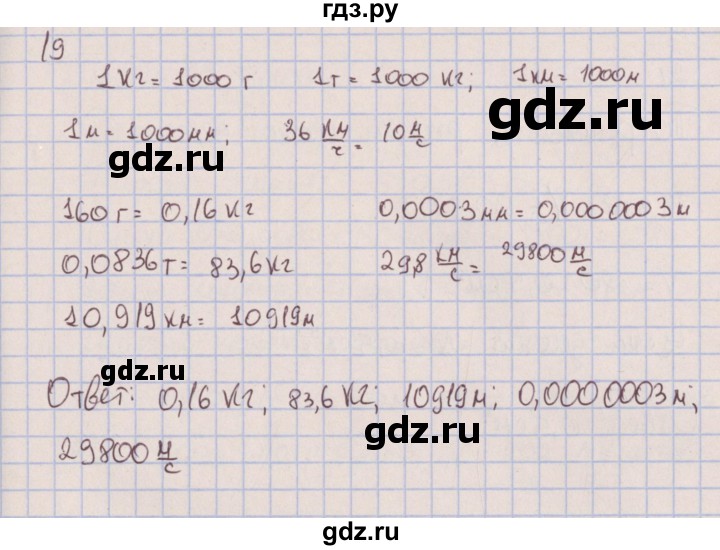 гдз.ру
19
1 кг = 1000 г 1т = 1000 кг; 1км = 1000м
gdz.ru
1м = 1000мм; 36 км/ч = 10 м/с
gdz.ru
160 г = 0,16 кг 0,0003 мм = 0,0000003 м
0,0836т = 83,6 кг 29,8 км/с = 29800 м/с
10,919 км = 10919м
gdz.ru
Ответ: 0,16 кг; 83,6 кг; 10919м; 0,0000003м;
gdz.ru
29800 м/с
gdz.ru